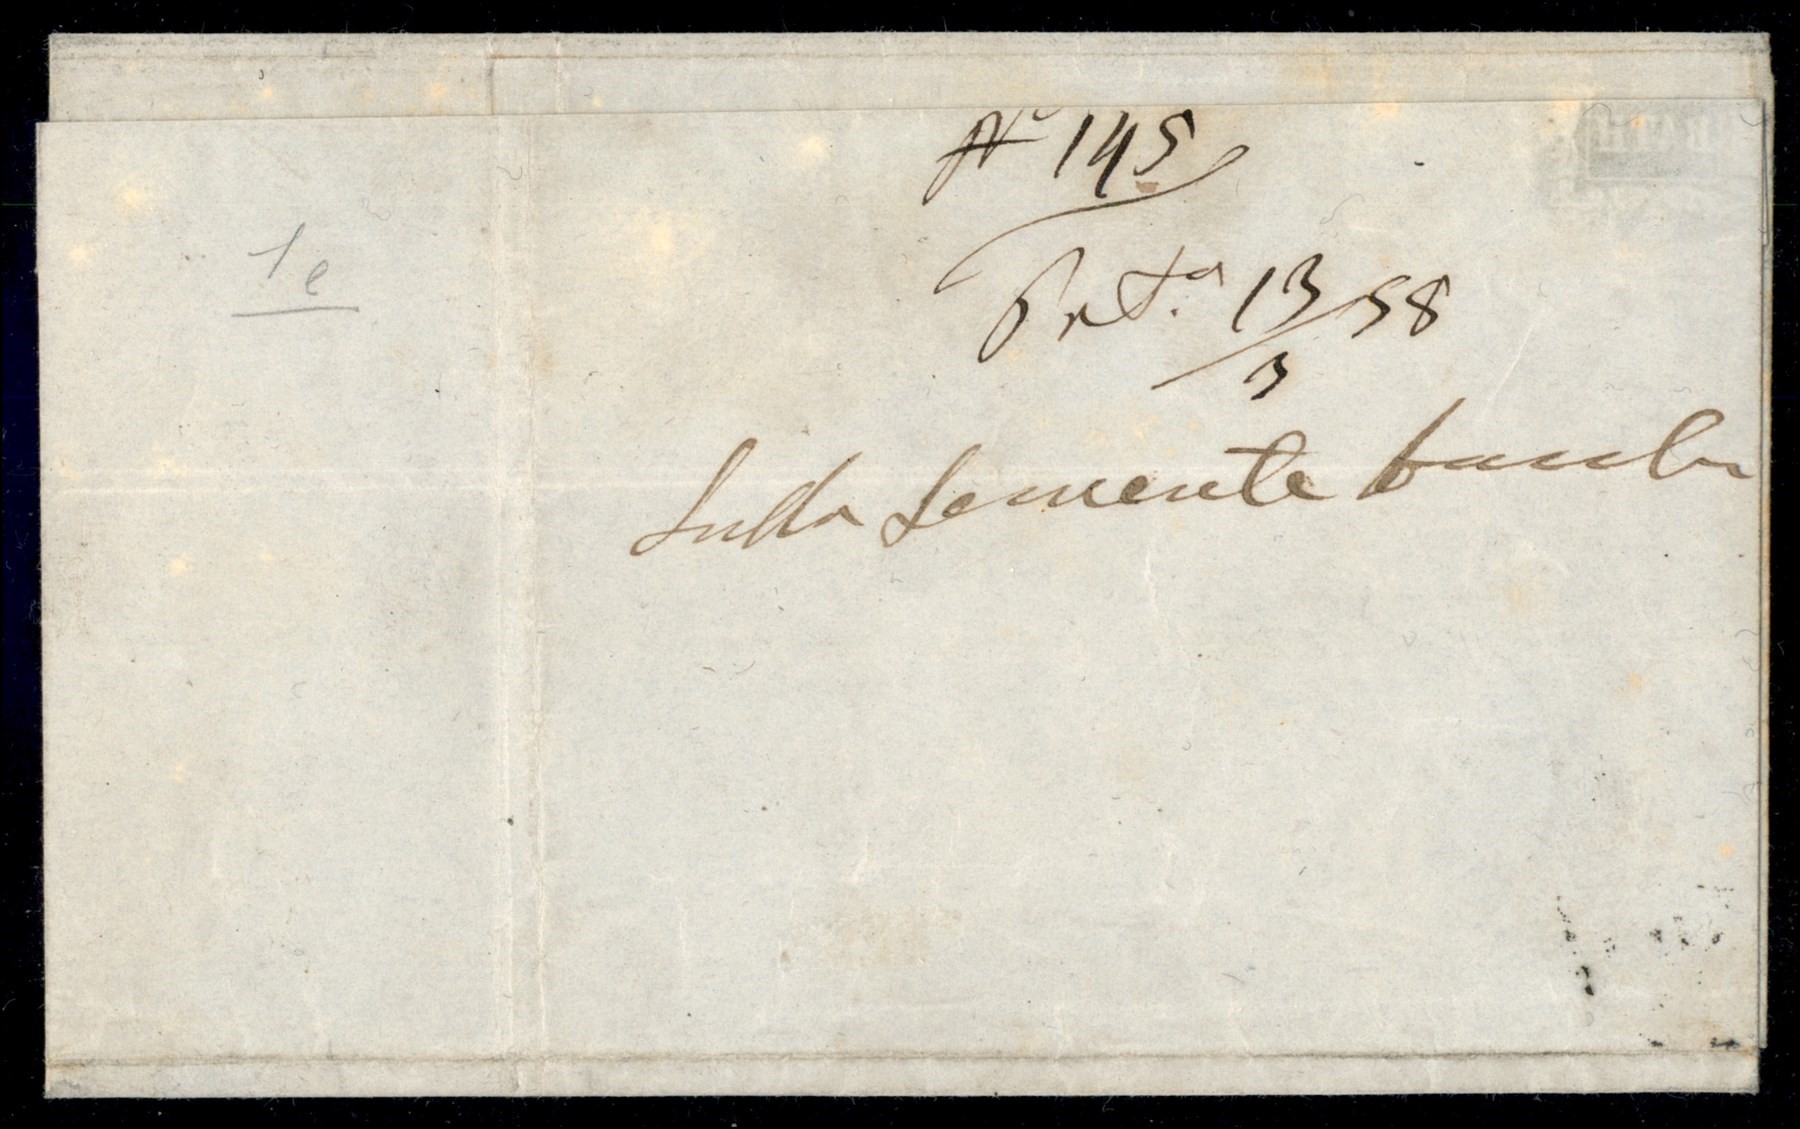 N° 145
Prta. 13/3 58
Sulla Semente bachi
1 e